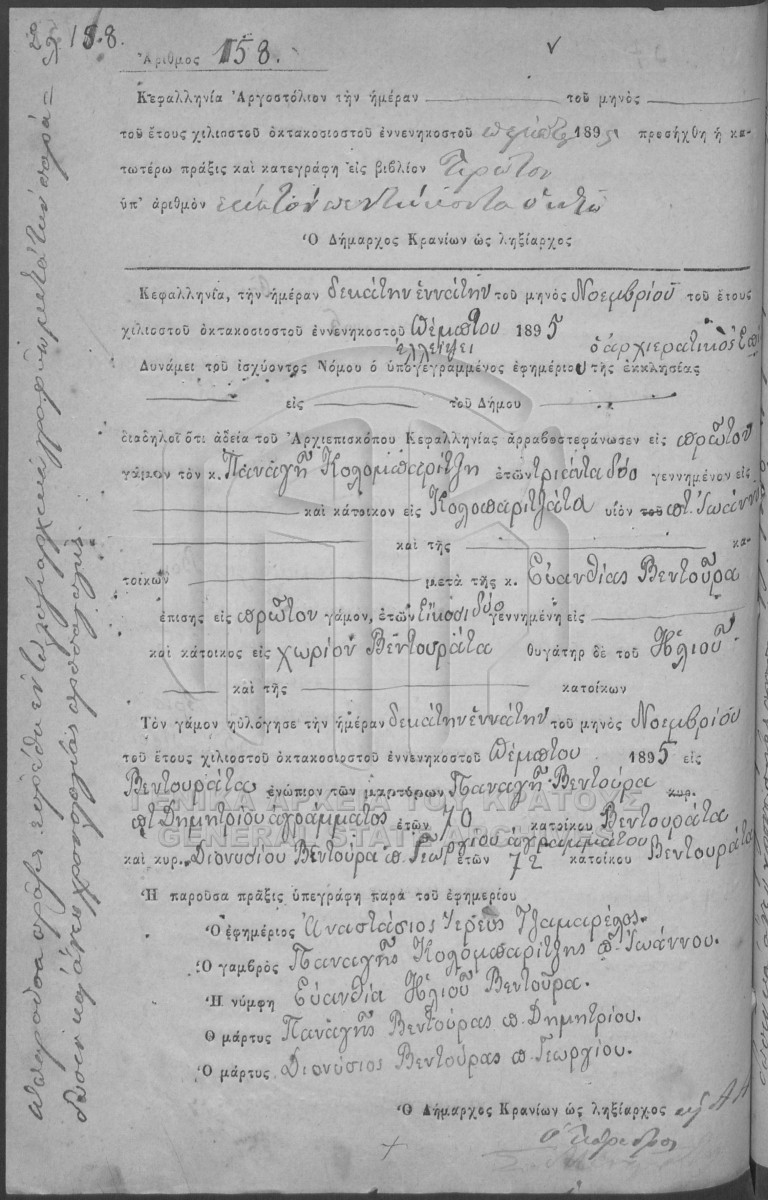 158.
Ἀριθμὸς 158.
Κεφαλληνία Ἀργοστόλιον τὴν ἡμέραν τοῦ μηνὸς
τοῦ ἔτους χιλιοστοῦ ὀκτακοσιοστοῦ ἐννενηκοστοῦ πέμπτου 1895 προσήχθη ἡ κα-
τωτέρω πρᾶξις καὶ κατεγράφη εἰς βιβλίον Πρῶτον
ὑπ' ἀριθμὸν ἑκατὸν πεντήκοντα ὀκτὼ
Ὁ Δήμαρχος Κρανίων ὡς ληξίαρχος
Κεφαλληνία, τὴν ἡμέραν δεκάτην ἐννάτην τοῦ μηνὸς Νοεμβρίου τοῦ ἔτους
χιλιοστοῦ ὀκτακοσιοστοῦ ἐννενηκοστοῦ Πέμπτου 1895
ἐλλείψει ὁ ἀρχιερατικὸς
Δυνάμει τοῦ ἰσχύοντος Νόμου ὁ ὑπογεγραμμένος ἐφημέριος τῆς ἐκκλησίας
εἰς τοῦ Δήμου
διαδηλοῖ ὅτι ἀδείᾳ τοῦ Ἀρχιεπισκόπου Κεφαλληνίας ἀρραβοστεφάνωσεν εἰς πρῶτον
γάμον τὸν κ. Παναγῆ Κολομπαρίτζη ἐτῶν τριάντα δύο γεννημένον εἰς
καὶ κάτοικον εἰς Κολοπαριτζάτα υἱὸν τοῦ π. Ἰωάννη
καὶ τῆς κα-
τοίκων μετὰ τῆς κ. Εὐανθίας Βεντοῦρα
ἐπίσης εἰς πρῶτον γάμον, ἐτῶν εἴκοσι δύο γεννημένη εἰς
καὶ κάτοικος εἰς χωρίον Βεντουράτα θυγάτηρ δὲ τοῦ Ἠλιοῦ
καὶ τῆς κατοίκων
Τὸν γάμον ηὐλόγησε τὴν ἡμέραν δεκάτην ἐννάτην τοῦ μηνὸς Νοεμβρίου
τοῦ ἔτους χιλιοστοῦ ὀκτακοσιοστοῦ ἐννενηκοστοῦ Πέμπτου 1895 εἰς
Βεντουράτα ἐνώπιον τῶν μαρτύρων Παναγῆ Βεντούρα κυρ.
ΓΕΝΙΚΑ ΑΡΧΕΙΑ ΤΟΥ ΚΡΑΤΟΥΣ
π. Δημητρίου ἀγράμματος ἐτῶν 70 κατοίκου Βεντουράτα
GENERAL STATE ARCHIVES
καὶ κυρ. Διονυσίου Βεντούρα π. Γεωργίου ἀγραμμάτου ἐτῶν 72 κατοίκου Βεντουράτα
Ἡ παροῦσα πρᾶξις ὑπεγράφη παρὰ τοῦ ἐφημερίου
Ὁ ἐφημέριος Ἀναστάσιος Ἱερεὺς Τζαμαρέλος.
Ὁ γαμβρὸς Παναγῆς Κολομπαρίτζης π. Ἰωάννου.
Ἡ νύμφη Εὐανθία Ἠλιοῦ Βεντοῦρα.
Ὁ μάρτυς Παναγῆς Βεντούρας π. Δημητρίου.
Ὁ μάρτυς Διονύσιος Βεντούρας π. Γεωργίου.
Ὁ Δήμαρχος Κρανίων ὡς ληξίαρχος
Ὁ Πάρεδρος